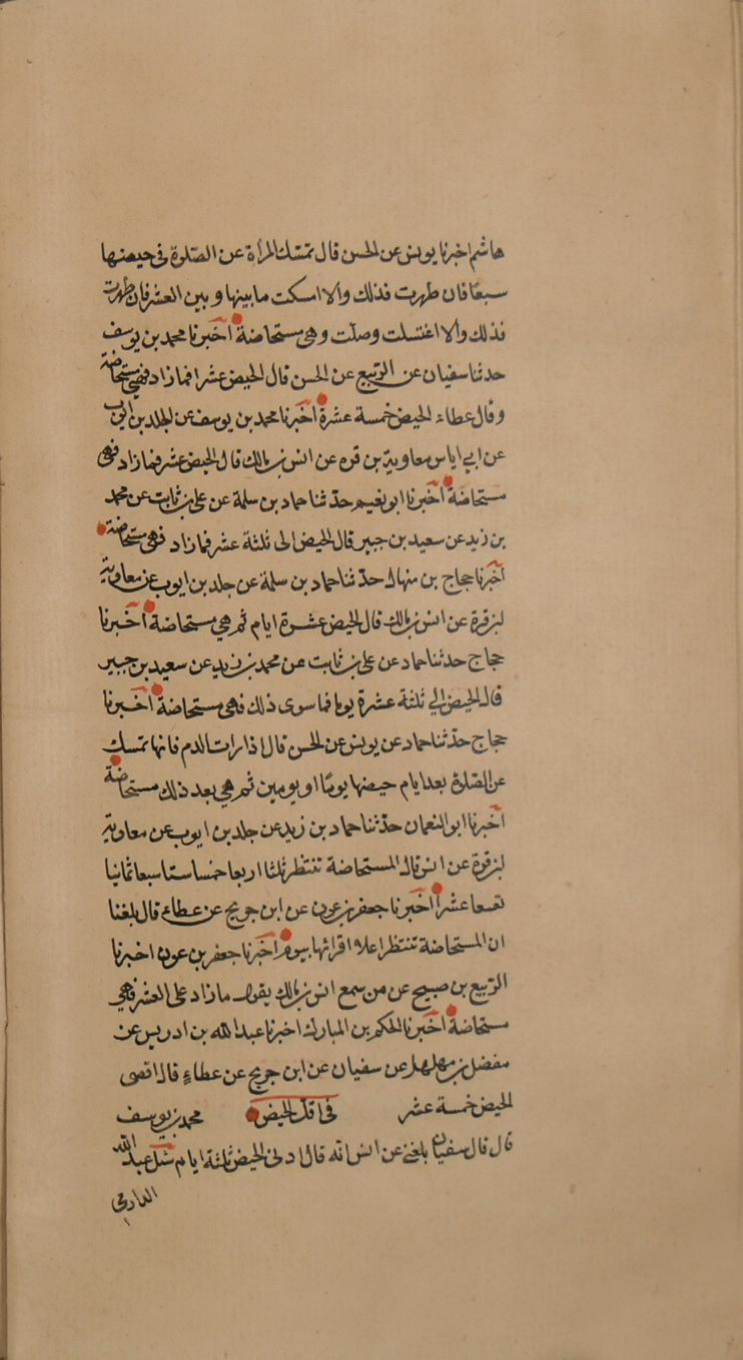 هاشم اخبرنا يونس عن الحسن قال تمسك المرأة عن الصلوة في حيضها
سبعا فان طهرت فذلك والا امسكت ما بينها وبين العشر فان طهرت
فذلك والا اغتسلت وصلت وهي مستحاضة اخبرنا محمد بن يوسف
حدثنا سفيان عن الربيع عن الحسن قال الحيض عشرا فما زاد فهي مستحاضة
وقال عطاء الحيض خمسة عشرة اخبرنا محمد بن يوسف عن الجلد بن ايوب
عن ابي اياس معاوية بن قره عن انس بن مالك قال الحيض عشر فما زاد فهي
مستحاضة اخبرنا ابو نعيم حدثنا حماد بن سلمة عن علي بن ثابت عن محمد
بن زيد عن سعيد بن جبير قال الحيض الى ثلثة عشر فما زاد فهي مستحاضة
اخبرنا حجاج بن منهال حدثنا حماد بن سلمة عن جلد بن ايوب عن معاوية
بن قرة عن انس بن مالك قال الحيض عشرة ايام ثم هي مستحاضة اخبرنا
حجاج حدثنا حماد عن علي بن ثابت عن محمد بن زيد عن سعيد بن جبير
قال الحيض الي ثلثة عشرة يوما فما سوى ذلك فهي مستحاضة اخبرنا
حجاج حدثنا حماد عن يونس عن الحسن قال اذا رات الدم فانها تمسك
عن الصلاة بعد ايام حيضها يوما او يومين ثم هي بعد ذلك مستحاضة
اخبرنا ابو النعمان حدثنا حماد بن زيد عن جلد بن ايوب عن معاوية
بن قرة عن انس قال المستحاضة تنتظر ثلثا اربعا خمسا ستا سبعا ثمانيا
تسعا عشرا اخبرنا جعفر بن عون عن ابن جريج عن عطاء قال بلغنا
ان المستحاضة تنتظر اعلا اقرائها بيوم اخبرنا جعفر بن عون اخبرنا
الربيع بن صبيح عن من سمع انس بن مالك يقول ما زاد على العشر فهي
مستحاضة اخبرنا الحكم بن المبارك اخبرنا عبد الله بن ادريس عن
مفضل بن مهلهل عن سفيان عن ابن جريج عن عطاء قال اقصى
الحيض خمسة عشر في اقل الحيض محمد بن يوسف
قال قال سفيان بلغني عن انس انه قال ادنى الحيض ثلثة ايام سئل عبد الله
الدارمي